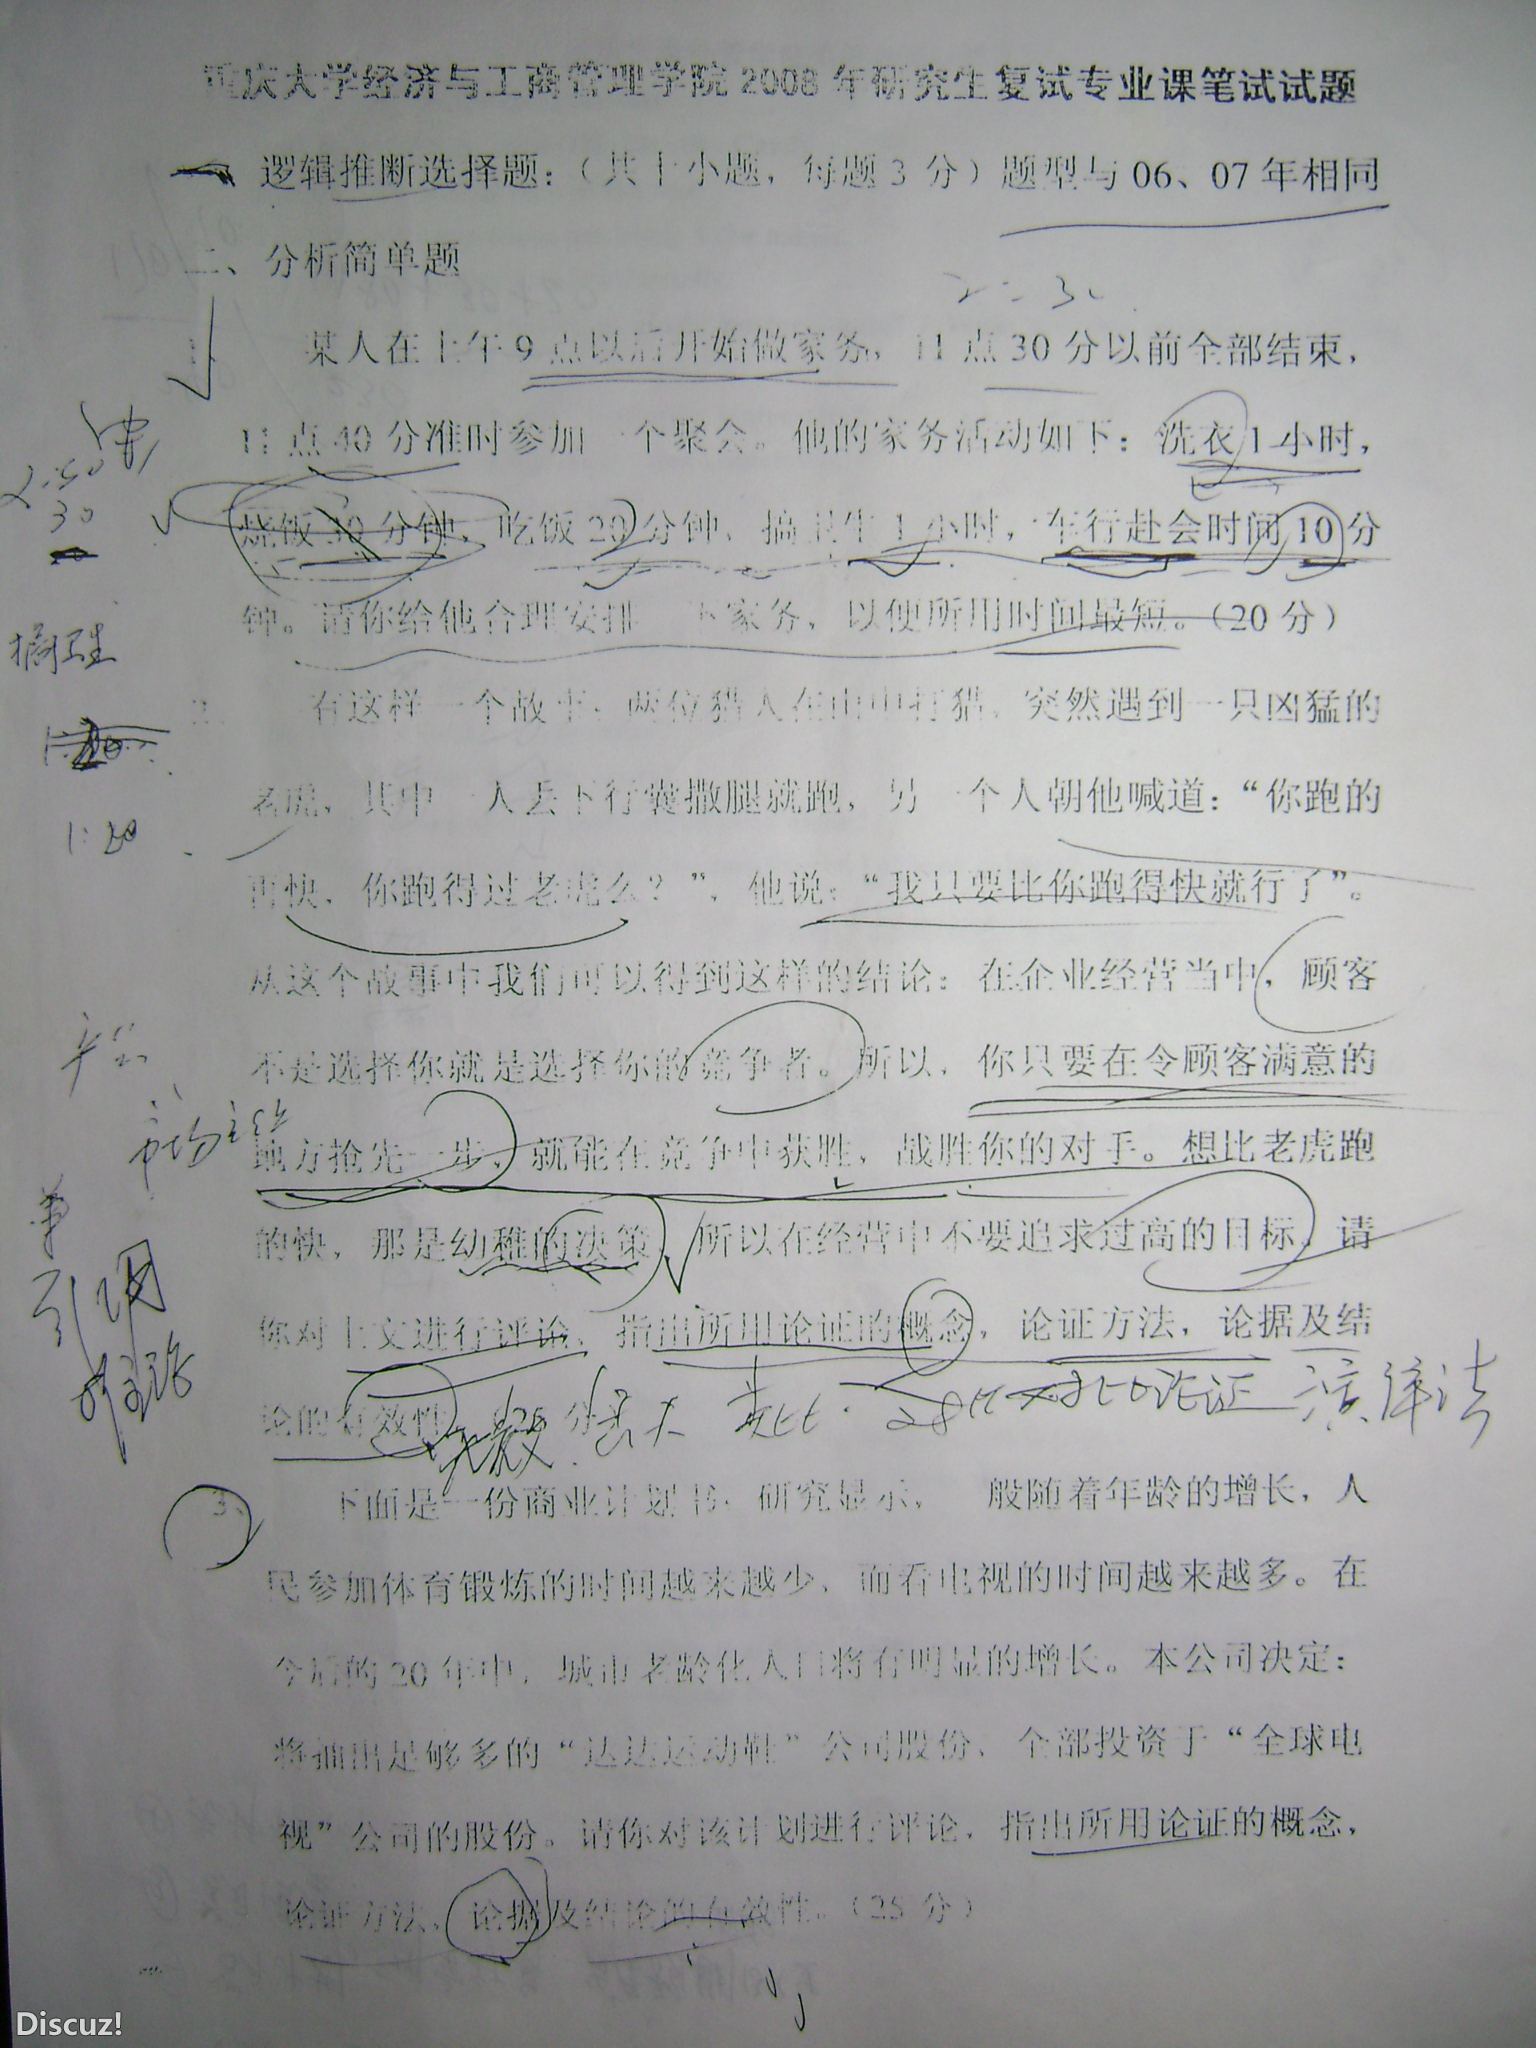 重庆大学经济与工商管理学院 2008 年研究生复试专业课笔试试题
一 逻辑推断选择题：（共十小题，每题 3 分）题型与 06、07 年相同
二、分析简单题
2：30
某人在上午 9 点以后开始做家务，11 点 30 分以前全部结束，
11 点 40 分准时参加一个聚会。他的家务活动如下：洗衣 1 小时，
烧饭 30 分钟，吃饭 20 分钟，搞卫生 1 小时，车行赴会时间 10 分
30
钟。请你给他合理安排一下家务，以便所用时间最短。（20 分）
搞卫生
2、 有这样一个故事，两位猎人在山中打猎，突然遇到一只凶猛的
老虎，其中一人丢下行囊撒腿就跑，另一个人朝他喊道：“你跑的
1:20
再快，你跑得过老虎么？”，他说：“我只要比你跑得快就行了”。
从这个故事中我们可以得到这样的结论：在企业经营当中，顾客
不是选择你就是选择你的竞争者。所以，你只要在令顾客满意的
地方抢先一步，就能在竞争中获胜，战胜你的对手。想比老虎跑
的快，那是幼稚的决策，所以在经营中不要追求过高的目标。请
你对上文进行评论，指出所用论证的概念，论证方法，论据及结
论的有效性。（25 分）
类比 对比论证 演绎法
3、 下面是一份商业计划书：研究显示，一般随着年龄的增长，人
民参加体育锻炼的时间越来越少，而看电视的时间越来越多。在
今后的 20 年中，城市老龄化人口将有明显的增长。本公司决定：
将抽出足够多的“达达运动鞋”公司股份，全部投资于“全球电
视”公司的股份。请你对该计划进行评论，指出所用论证的概念，
论证方法，论据及结论的有效性。（25 分）
Discuz!